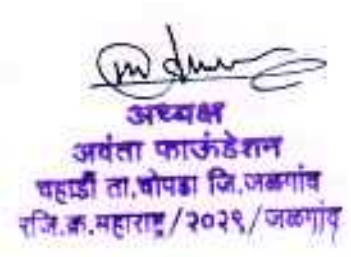 अध्यक्ष
अवंता फाऊंडेशन
चहार्डी ता.चोपडा जि.जळगांव
रजि.क्र.महाराष्ट्र/२०२१/जळगांव